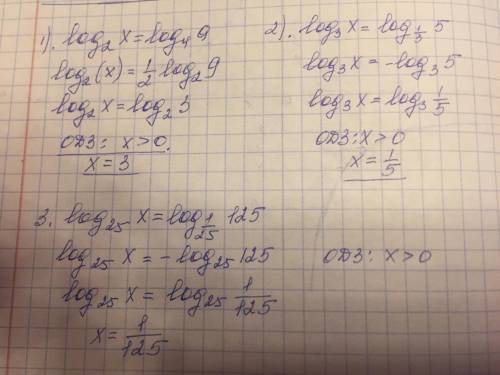 1). log₂ x = log₄ 9
log₂(x) = 1/2 log₂ 9
log₂ x = log₂ 3
ОДЗ: x > 0.
x = 3
2). log₃ x = log_{1/3} 5
log₃ x = -log₃ 5
log₃ x = log₃ 1/5
ОДЗ: x > 0
x = 1/5
3. log₂₅ x = log_{1/25} 125
log₂₅ x = - log₂₅ 125
ОДЗ: x > 0
log₂₅ x = log₂₅ 1/125
x = 1/125